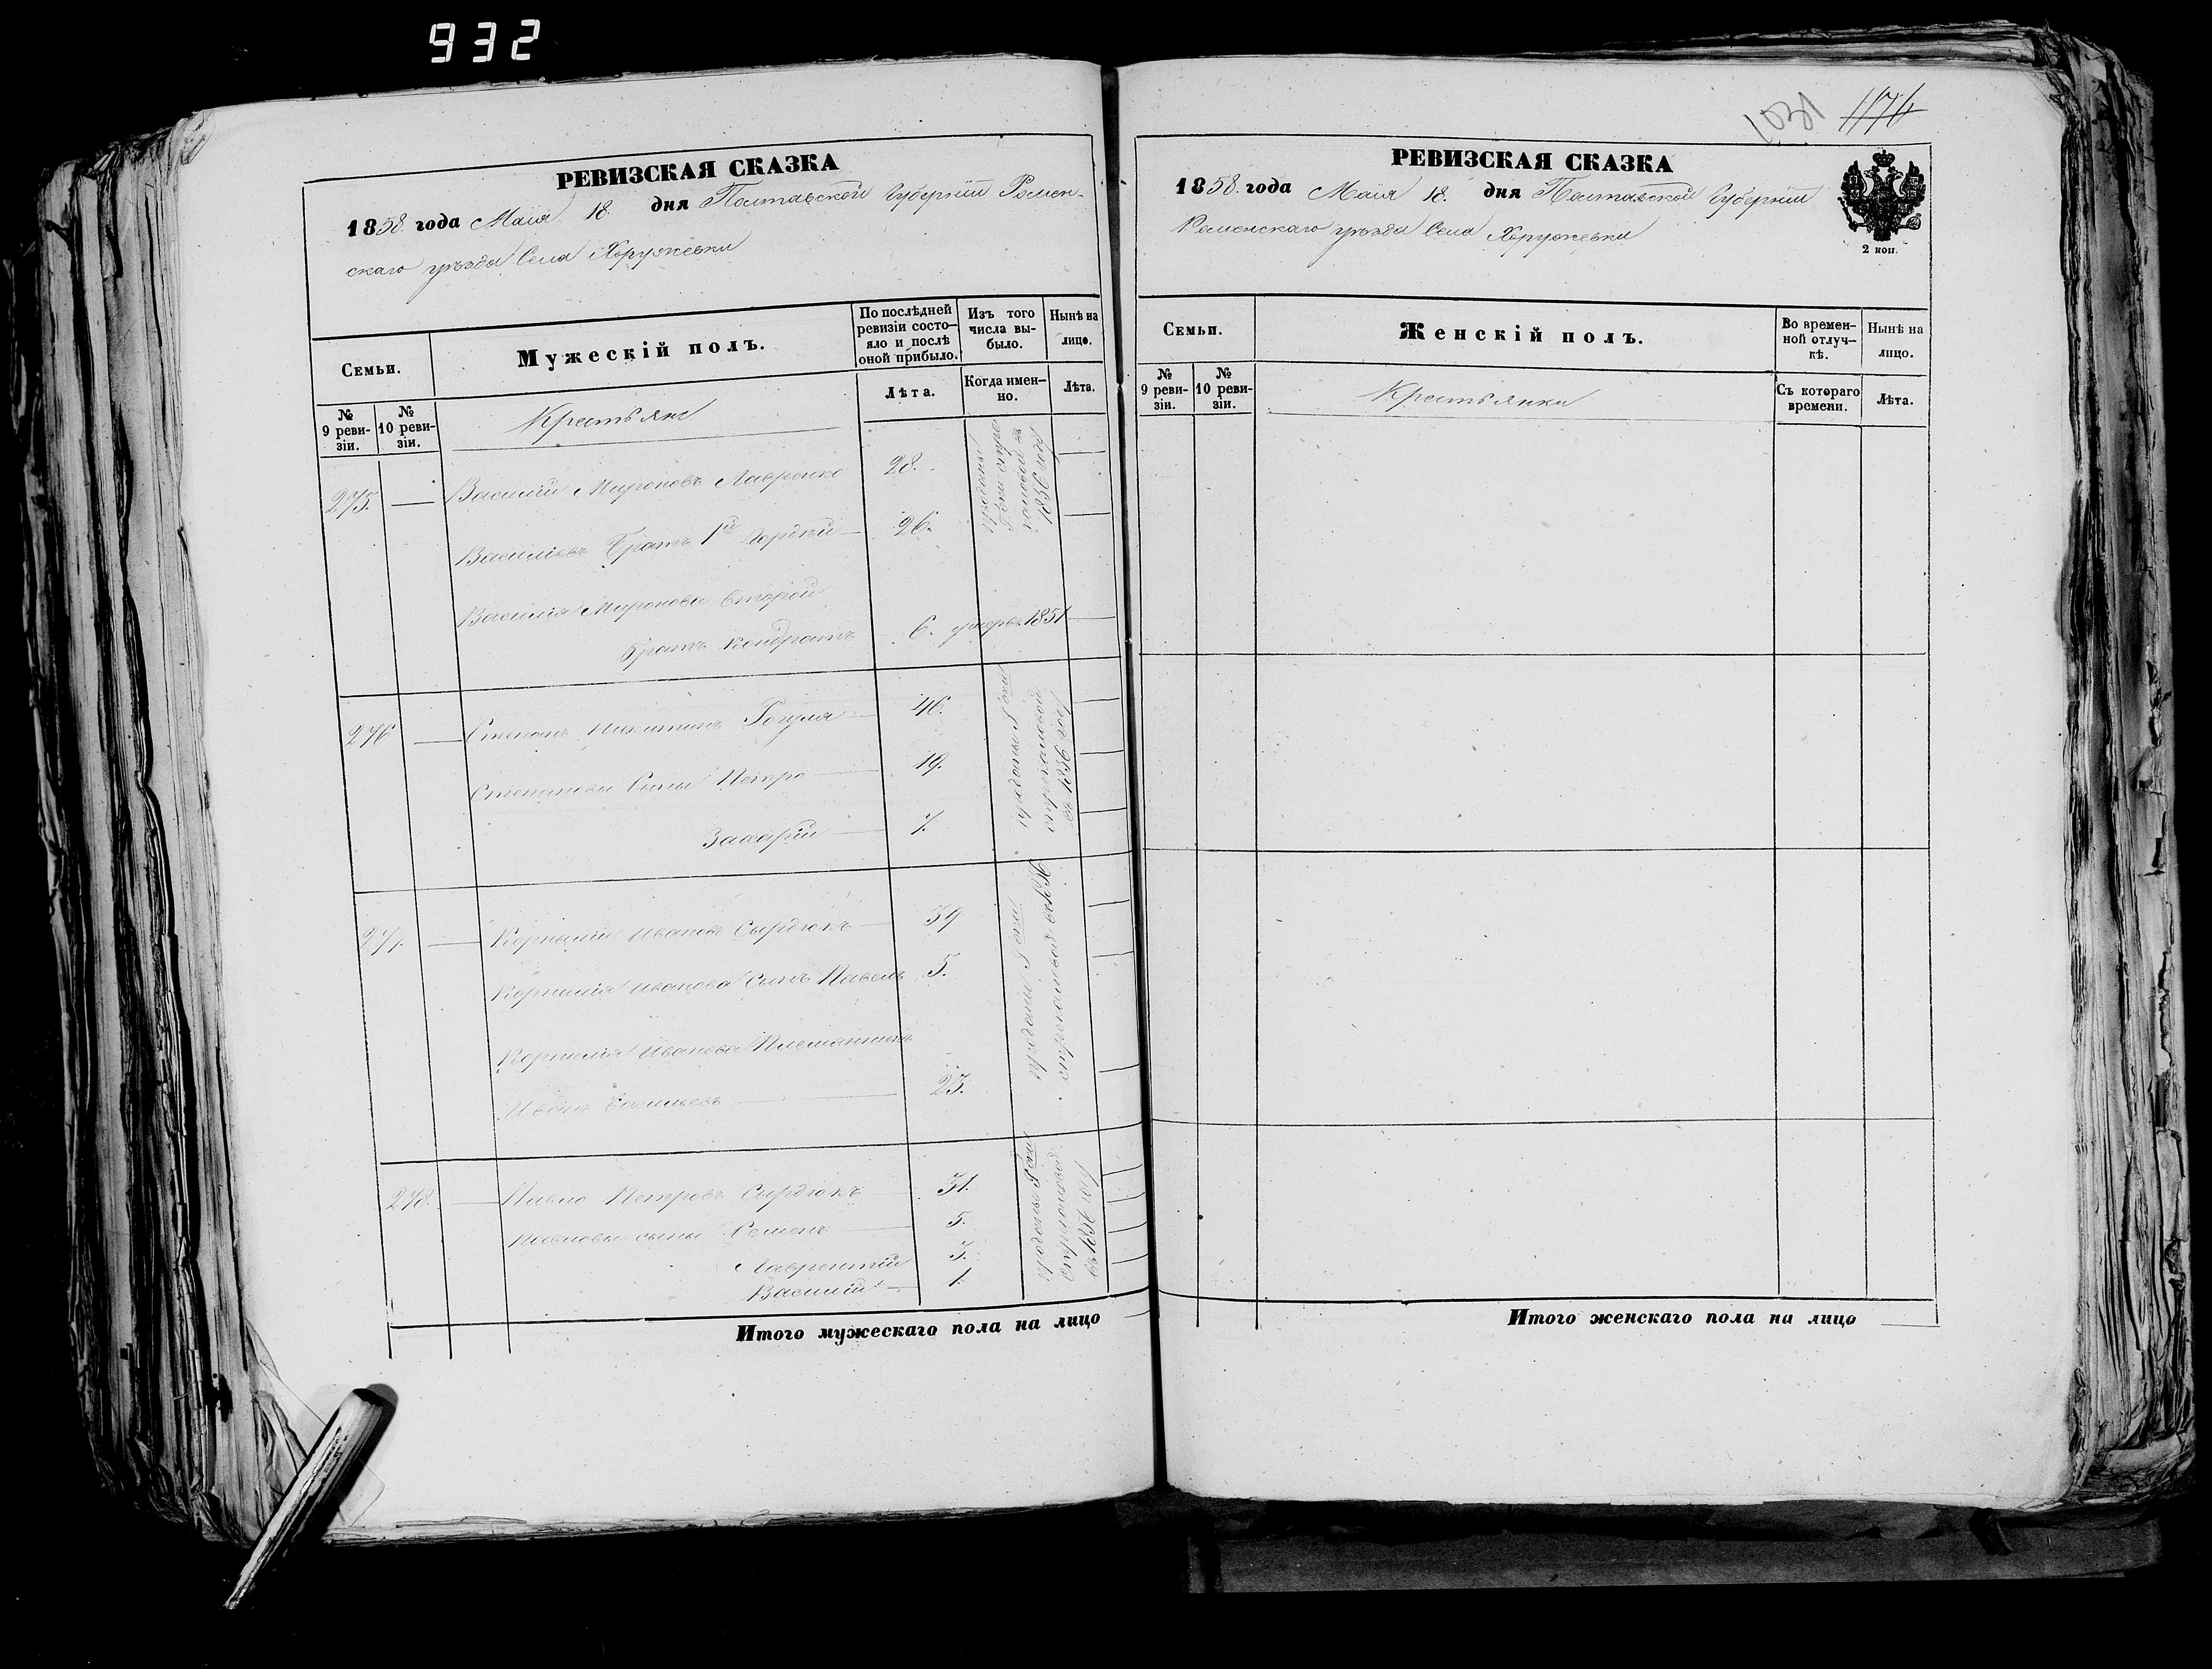 932
РЕВИЗСКАЯ СКАЗКА
1858 года Маія 18. дня Полтавской Губерніи Ромен-
скаго уѣзда Села Хоружевки
Семьи.
Мужескій полъ.
По послѣдней ревизіи состо-яло и послѣ оной прибыло.
Изъ того числа вы-было.
Нынѣ на лицо.
№ 9 реви-зіи.
№ 10 реви-зіи.
Крестьяне
Лѣта.
Когда имен-но.
Лѣта.
275. Василій Мироновъ Лавренко 28.
проданы Гжи
1856 года
Василіевъ братъ 1й Гордѣй 26.
Василія Миронова второй
братъ Кондратъ 6. умеръ 1851
276 Степанъ Никитинъ Рогуля 46.
проданы Гжи
въ 1856 году
Степановы сыны Петро 19.
Захарій 7.
277. Корнилій Ивановъ Сырдюкъ 39
проданы Гжи
Корнилія Иванова сынъ Павелъ 5.
Корнилія Иванова племянникъ
Иванъ 23.
278. Павло Петровъ Сырдюкъ 31.
проданы Гжи
въ 1856 году
Павловы сыны Семенъ 5.
Лаврентій 3.
Василій 1.
Итого мужескаго пола на лицо
1031 1176
РЕВИЗСКАЯ СКАЗКА
1858 года Маія 18. дня Полтавской Губерніи
Роменскаго уѣзда Села Хоружевки
2 коп.
Семьи.
Женскій полъ.
Во времен-ной отлуч-кѣ.
Нынѣ на лицо.
№ 9 реви-зіи.
№ 10 реви-зіи.
Крестьянки
Съ котораго времени.
Лѣта.
Итого женскаго пола на лицо